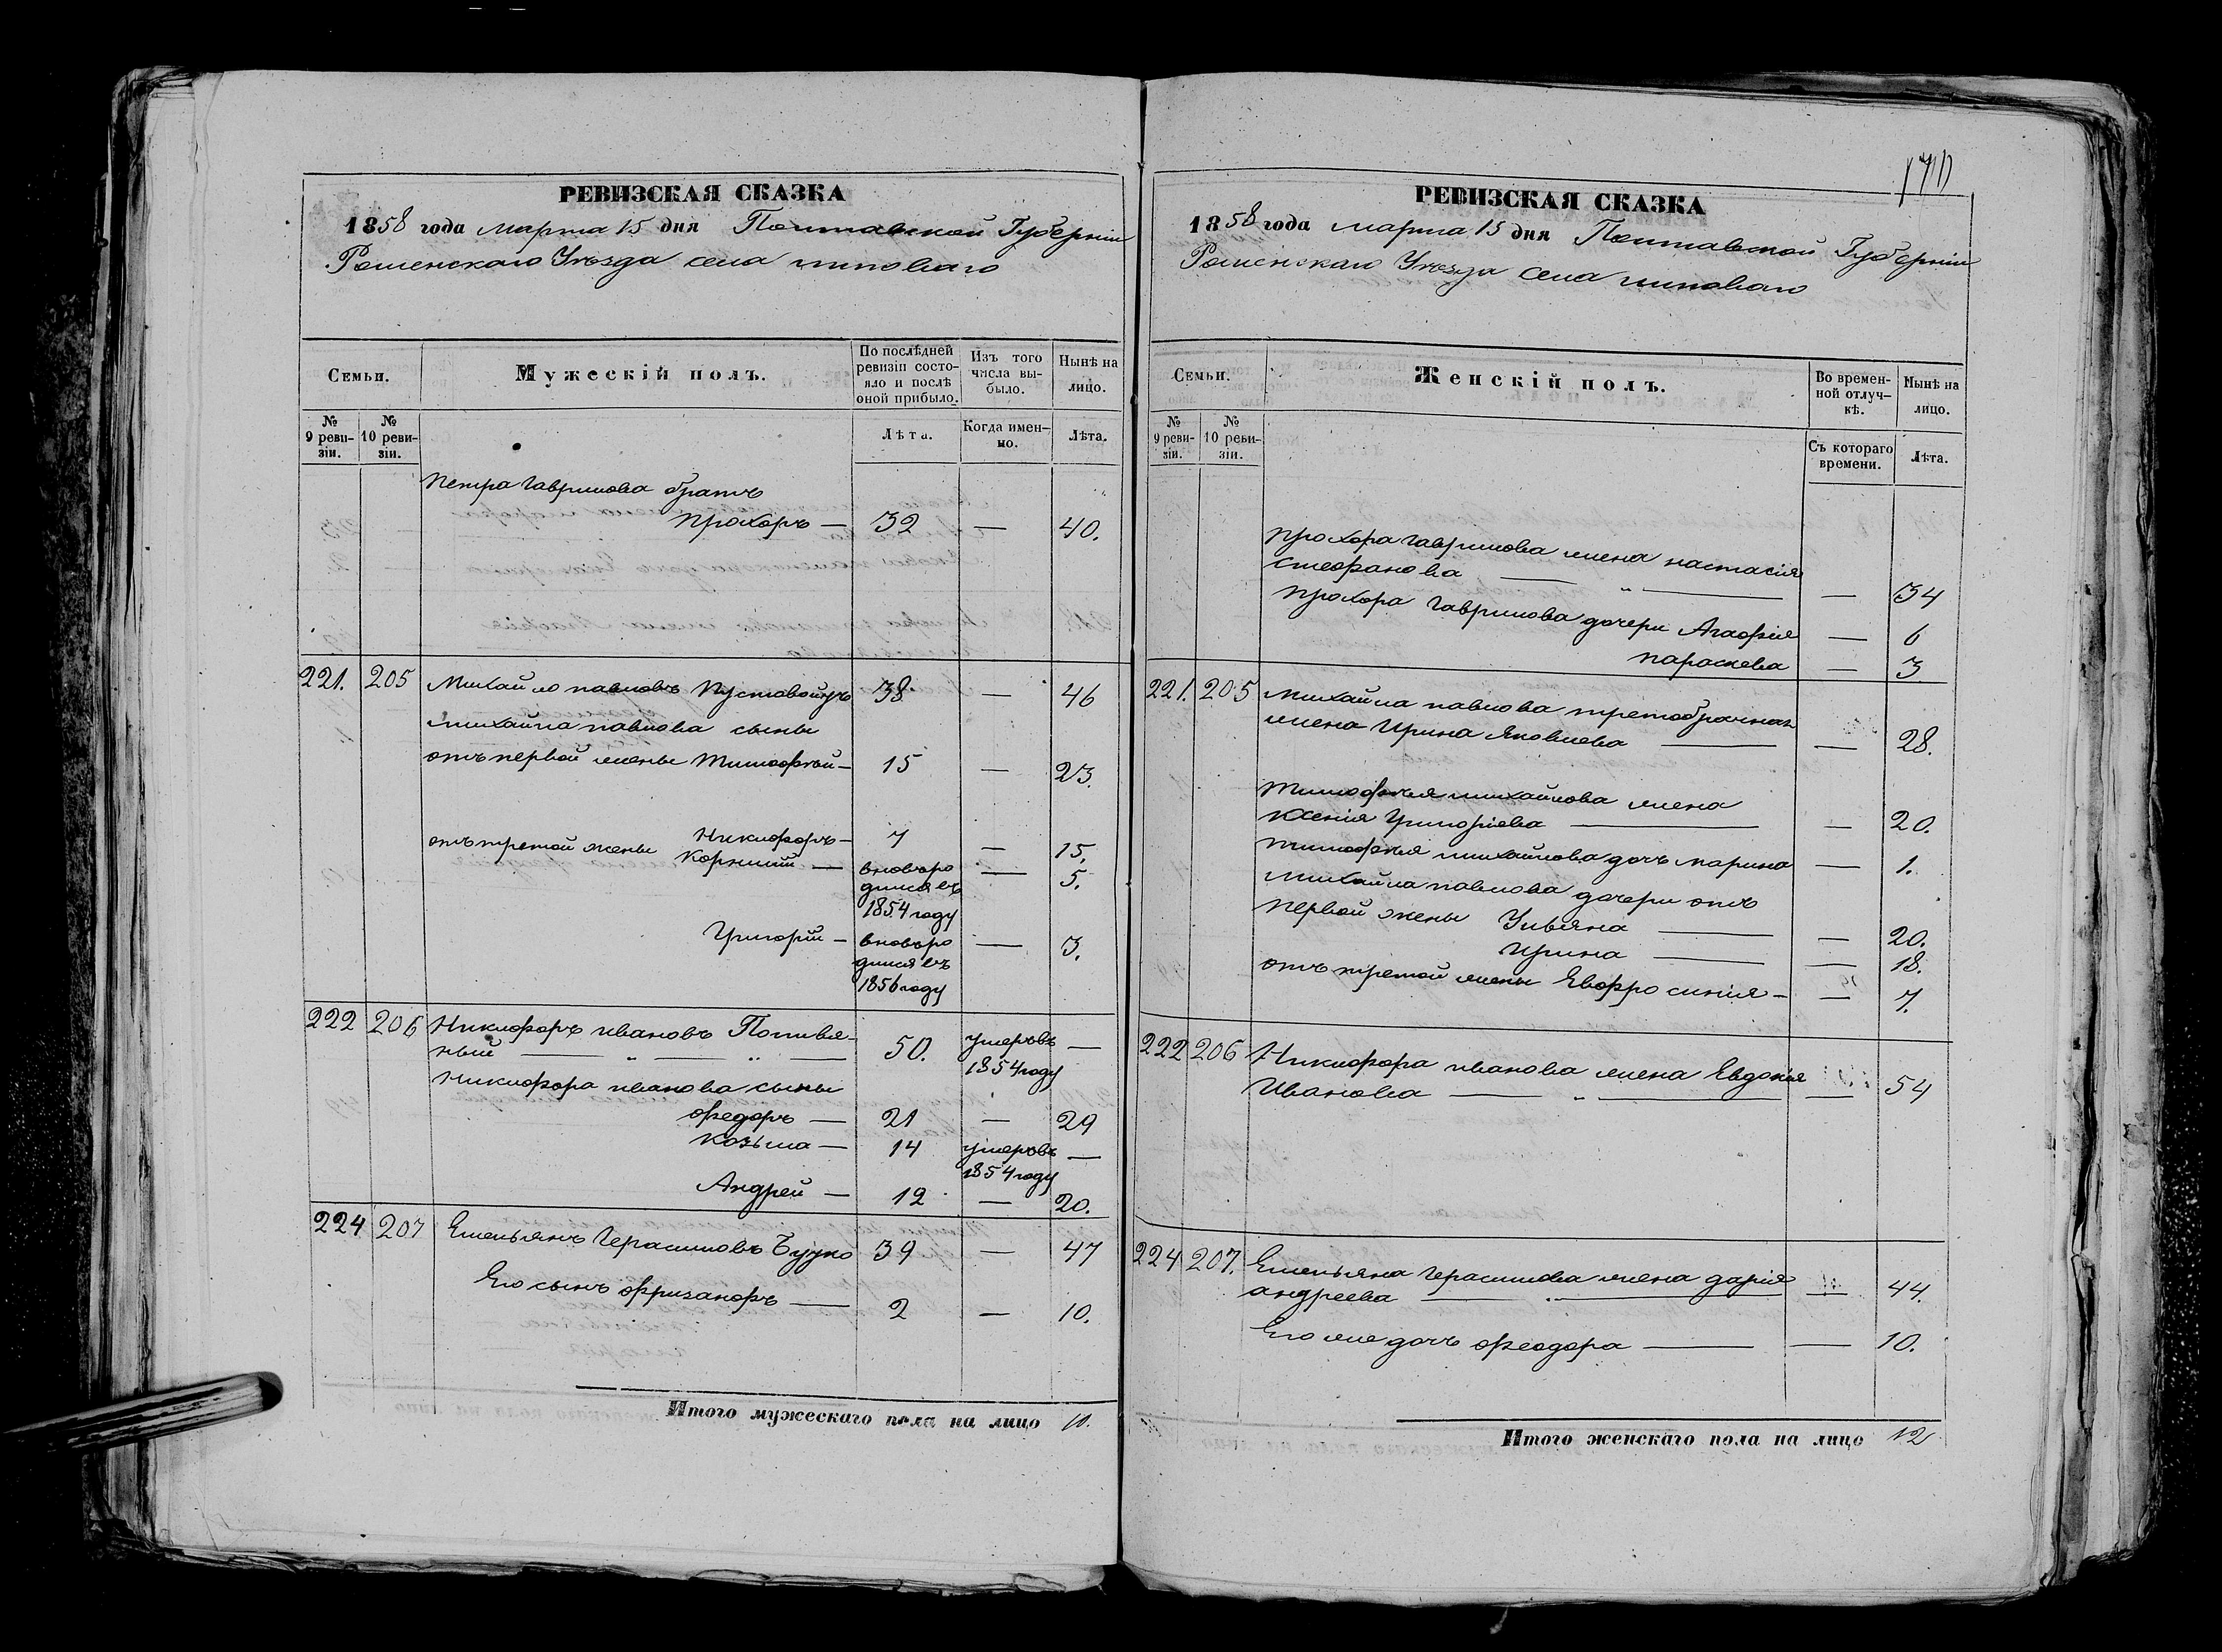 РЕВИЗСКАЯ СКАЗКА
1858 года марта 15 дня Полтавской Губерніи
Роменскаго Уѣзда села
Семьи.
Мужескій полъ.
По послѣдней ревизіи состояло и послѣ оной прибыло.
Изъ того числа выбыло.
Нынѣ на лицо.
№ 9 ревизіи.
№ 10 ревизіи.
Лѣта.
Когда именно.
Лѣта.
Петра Гаврилова братъ
Прохоръ — 32 — 40.
221. 205 Михайло Павловъ Пустовойтъ 38 — 46
Михайла Павлова сыны
отъ первой жены Тимофѣй — 15 — 23.
Никифоръ — 7 — 15.
отъ третой жены Корнилій — вновь родился въ 1854 году — 5.
Григорій — вновь родился въ 1856 году — 3.
222 206 Никифоръ Ивановъ Поливяный — „ — „ — 50. умеръ въ 1854 году —
Никифора Иванова сыны
Федоръ — 21 — 29
Козьма — 14 умеръ въ 1854 году —
Андрей — 12 — 20.
224 207 Емельянъ Герасимовъ 39 — 47
Его сынъ — 2 — 10.
Итого мужескаго пола на лицо 10.
РЕВИЗСКАЯ СКАЗКА
1858 года марта 15 дня Полтавской Губерніи
Роменскаго Уѣзда села
Семьи.
Женскій полъ.
Во временной отлучкѣ.
Нынѣ на лицо.
№ 9 ревизіи.
№ 10 ревизіи.
Съ котораго времени.
Лѣта.
Прохора Гаврилова жена Настасія
Стефанова — „ — — 34
Прохора Гаврилова дочери Агафія — 6
Параскева — 3
221. 205 Михайла Павлова третобрачная
жена Ирина Яковлева — — 28.
Тимофѣя Михайлова жена
Ксенія Григоріева — — 20.
Тимофѣя Михайлова дочь Марина — 1.
Михайла Павлова дочери отъ
первой жены Ульяна — — 20.
Ирина — — 18.
отъ третой жены Евфросинія — — 7.
222 206 Никифора Иванова жена Евдокія
Иванова — „ — — 54
224 207. Емельяна Герасимова жена Дарія
Андреева — „ — — 44.
Его же дочь Феодора — — 10.
Итого женскаго пола на лицо 12